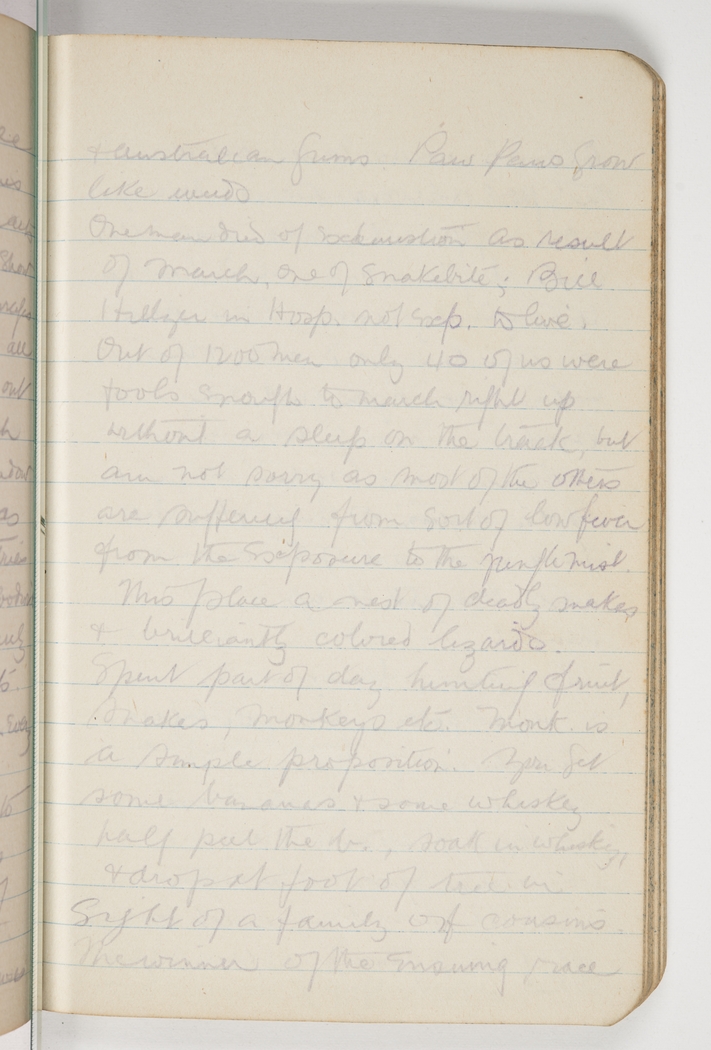 + Australian Gums. Paw Paws grow
like weeds
One man died of exhaustion as result
of march, one of snakebite; Bill
in Hosp. not exp. to live.
Out of 1200 men only 40 of us were
fools enough to march right up
without a sleep on the track, but
am not sorry as most of the others
are suffering from sort of low fever
from the exposure to the jungle mist.
This place a nest of deadly snakes
& brilliantly colored lizards.
Spent part of day hunting fruit,
snakes, monkeys etc. Monk. is
a simple proposition. You get
some bananas & some whiskey
half peel the b., soak in whiskey,
& drop at foot of tree in
sight of a family of cousins.
The winner of the ensuing race